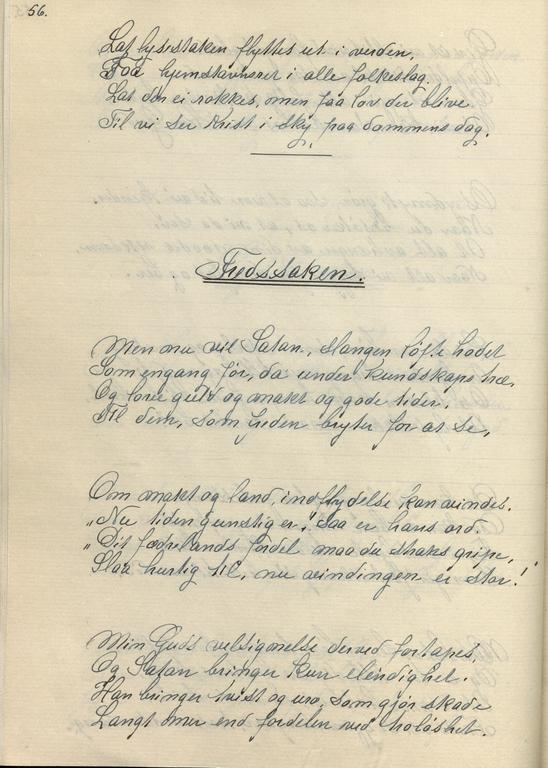 56.
Lat lysestaken flyttes ut i verden,
Faa hjemstavnsret i alle folkeslag.
Lat den ei rokkes, men faa lov der blive
Til vi ser Krist i sky paa dommens dag.
Fredssaken.
Men nu vil Satan, slangen løfte hodet
Som engang før, da under kundskaps træ,
Og love guld og makt og gode tider,
Til dem, som freden bryter for at se,
Om makt og land, indflydelse kan vindes.
"Nu tiden gunstig er," saa er hans ord.
"Dit fædrelands fordel maa du straks gripe,
Slaa hurtig til, nu vindingen er stor!"
Min Guds velsignelse derved fortapes,
Og Satan bringer kun elendighet.
Han bringer tvist og uro, som gjør skade
Langt mer end fordelen ved troløshet.